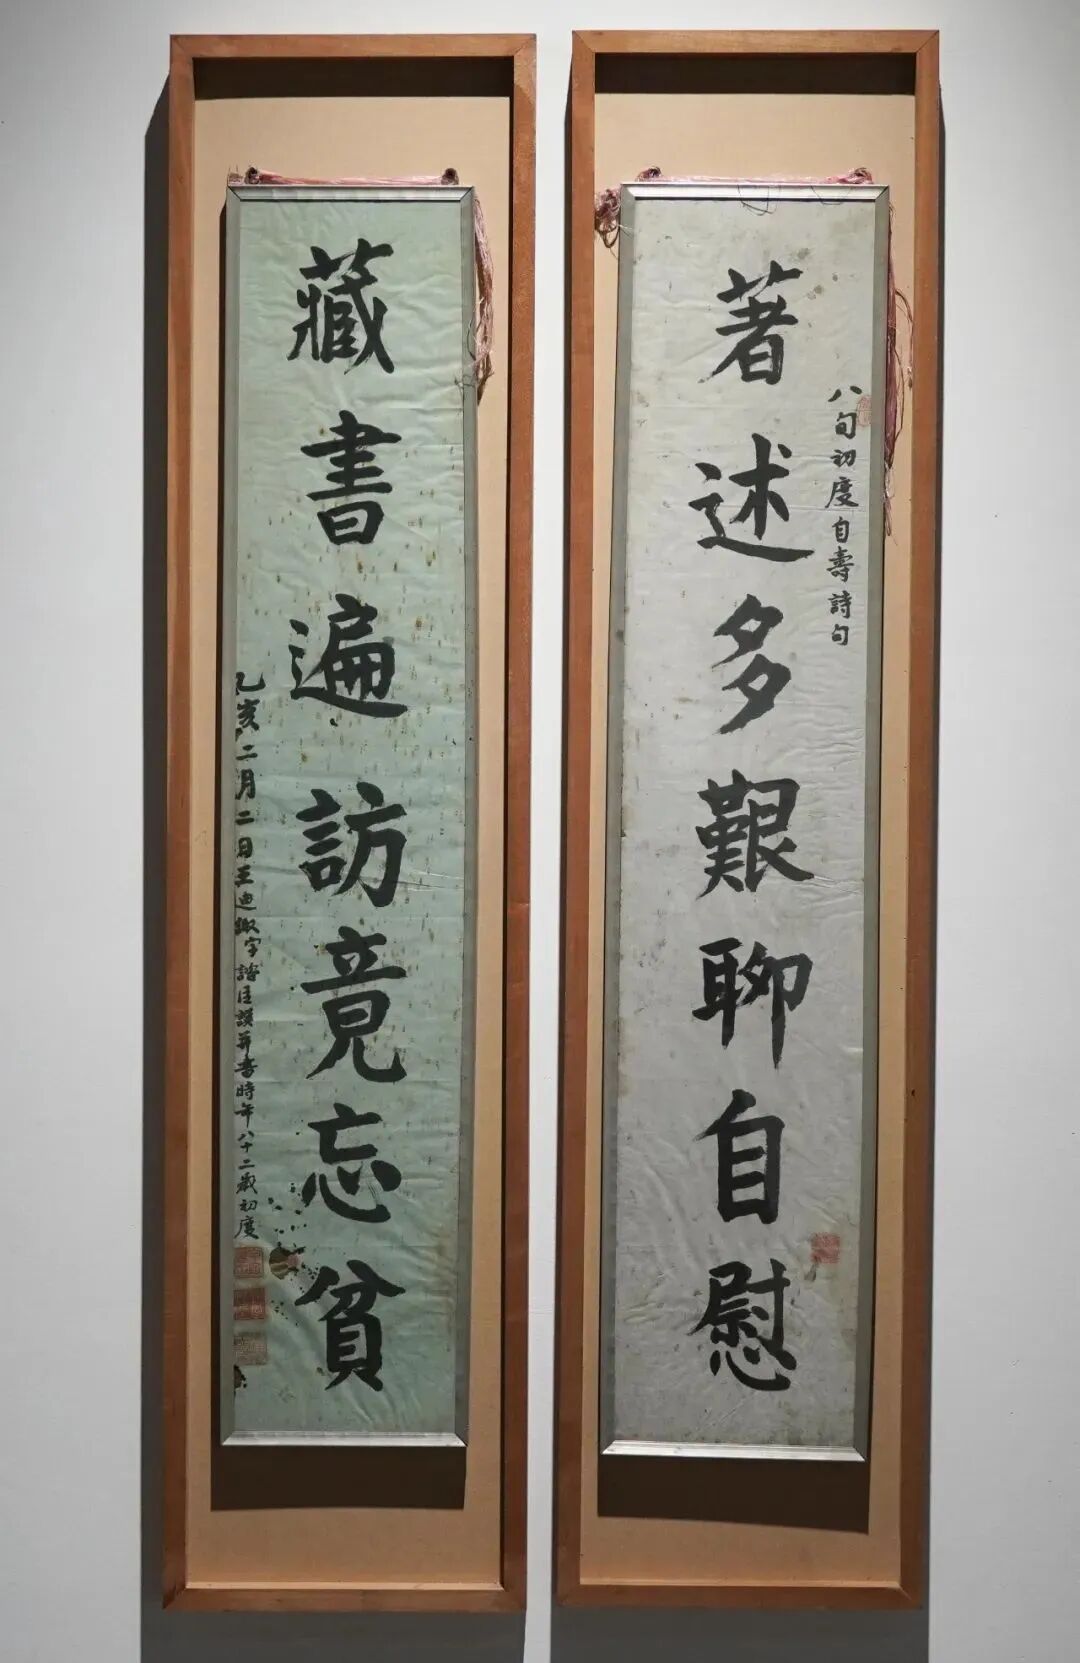 八旬初度自壽詩句
著述多艱聊自慰
藏書遍訪竟忘貧
乙亥二月二日王迪諏字諮臣譔并書時年八十二歲初度